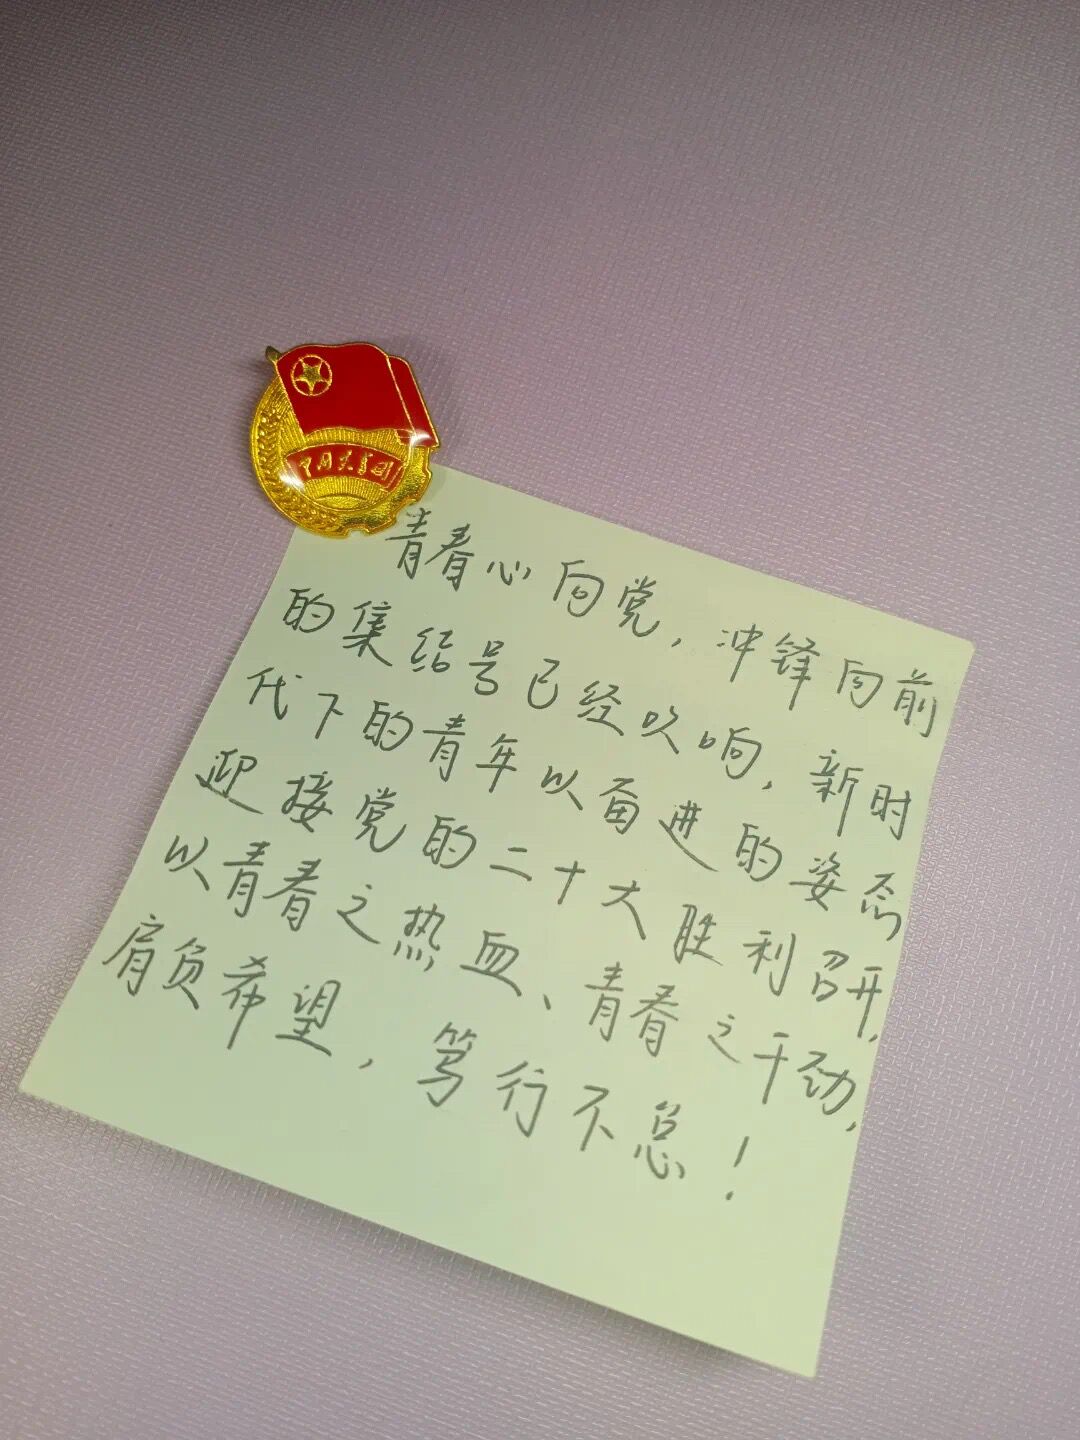 中国共青团
青春心向党，冲锋向前
的集结号已经吹响，新时
代下的青年以奋进的姿态
迎接党的二十大胜利召开，
以青春之热血、青春之干劲，
肩负希望，笃行不怠！